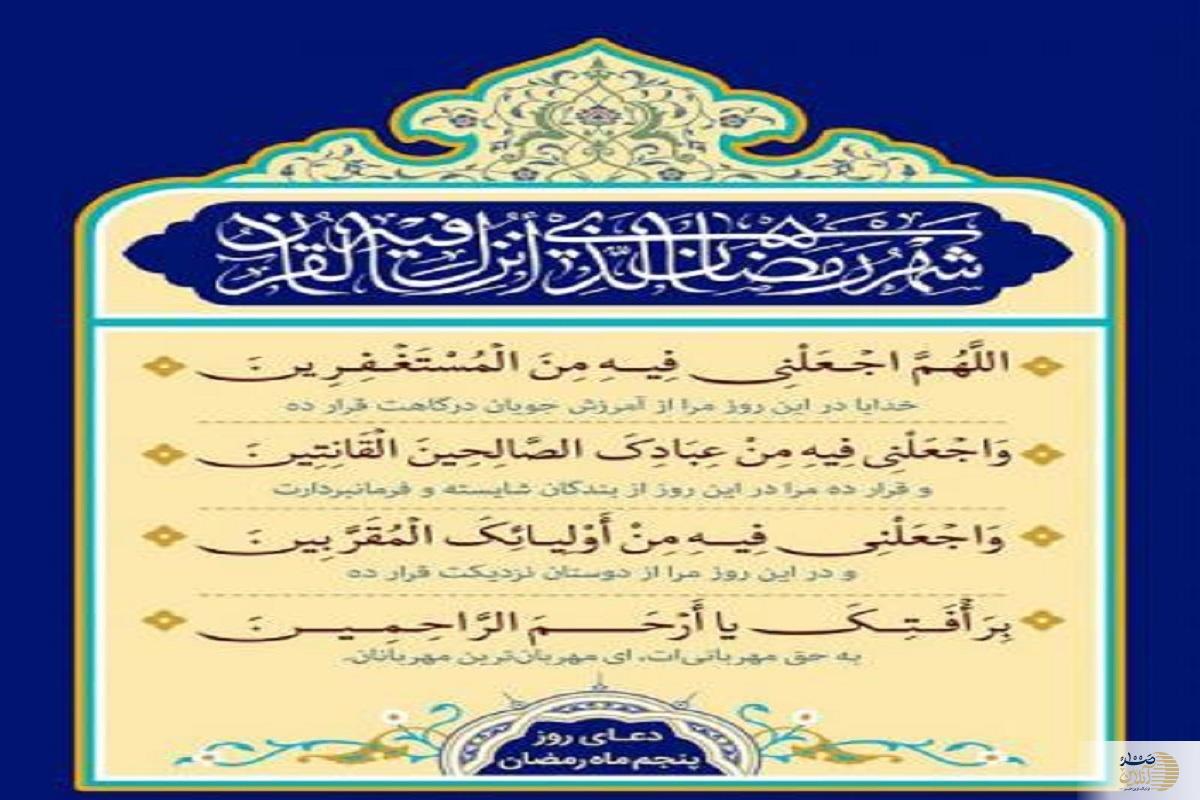 شَهْرُ رَمَضَانَ الَّذِي أُنْزِلَ فِيهِ الْقُرْآنُ
اللَّهُمَّ اجْعَلْنِي فِيهِ مِنَ الْمُسْتَغْفِرِينَ
خدایا در این روز مرا از آمرزش جویان درگاهت قرار ده
وَاجْعَلْنِي فِيهِ مِنْ عِبَادِکَ الصَّالِحِينَ الْقَانِتِينَ
و قرار ده مرا در این روز از بندگان شایسته و فرمانبردارت
وَاجْعَلْنِي فِيهِ مِنْ أَوْلِيائِکَ الْمُقَرَّبِينَ
و در این روز مرا از دوستان نزدیکت قرار ده
بِرَأْفَتِکَ يا أَرْحَمَ الرَّاحِمِينَ
به حق مهربانی‌ات، ای مهربان‌ترین مهربانان.
دعای روز
پنجم ماه رمضان
صدر
آنلاین